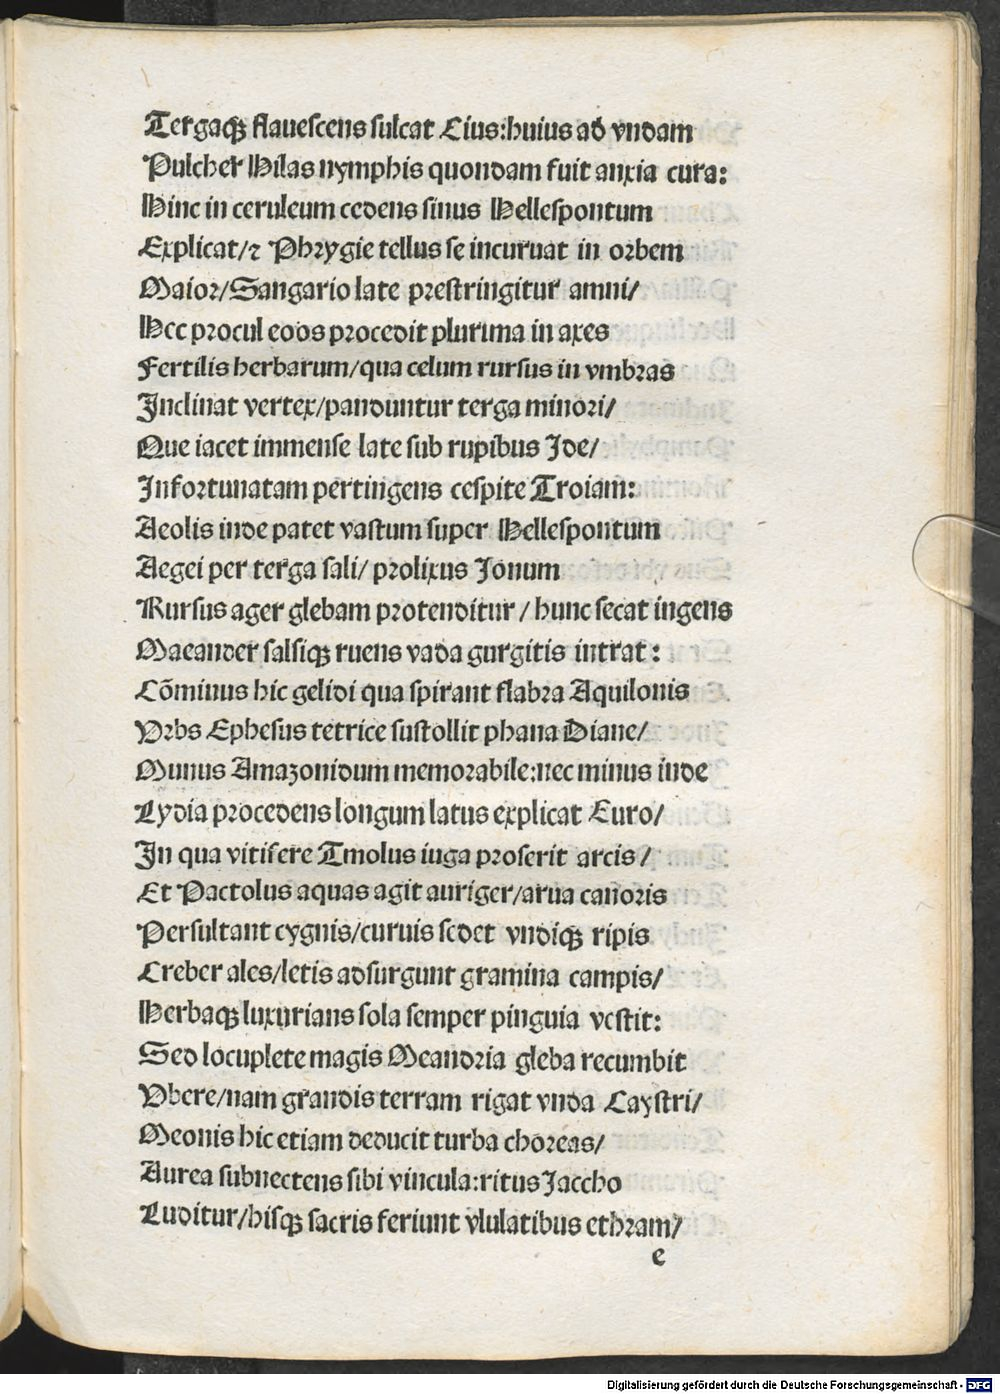 Tergaqꝫ flauescens sulcat Cius:huius ad vndam
Pulcher Hilas nymphis quondam fuit anxia cura:
Hinc in ceruleum cedens sinus Hellespontum
Explicat/⁊ Phrygie tellus se incuruat in orbem
Maior/Sangario late prestringitur amni/
Hec procul eoos procedit plurima in axes
Fertilis herbarum/qua celum rursus in vmbras
Inclinat vertex/panduntur terga minori/
Que iacet immense late sub rupibus Ide/
Infortunatam pertingens cespite Troiam:
Aeolis inde patet vastum super Hellespontum
Aegei per terga sali/ prolixus Ionum
Rursus ager glebam protenditur / hunc secat ingens
Maeander salsiqꝫ ruens vada gurgitis intrat :
Cõminus hic gelidi qua spirant flabra Aquilonis
Vrbs Ephesus tetrice sustollit phana Diane/
Munus Amazonidum memorabile:nec minus inde
Lydia procedens longum latus explicat Euro/
In qua vitifere Tmolus iuga proserit arcis /
Et Pactolus aquas agit auriger/arua canoris
Persultant cygnis/curuis sedet vndiqꝫ ripis
Creber ales/letis adsurgunt gramina campis/
Herbaqꝫ luxurians sola semper pinguia vestit:
Sed locuplete magis Meandria gleba recumbit
Vbere/nam grandis terram rigat vnda Caystri/
Meonis hic etiam deducit turba choreas/
Aurea subnectens sibi vincula:ritus Iaccho
Luditur/hisqꝫ sacris feriunt vlulatibus ethram/
e
Digitalisierung gefördert durch die Deutsche Forschungsgemeinschaft - DFG